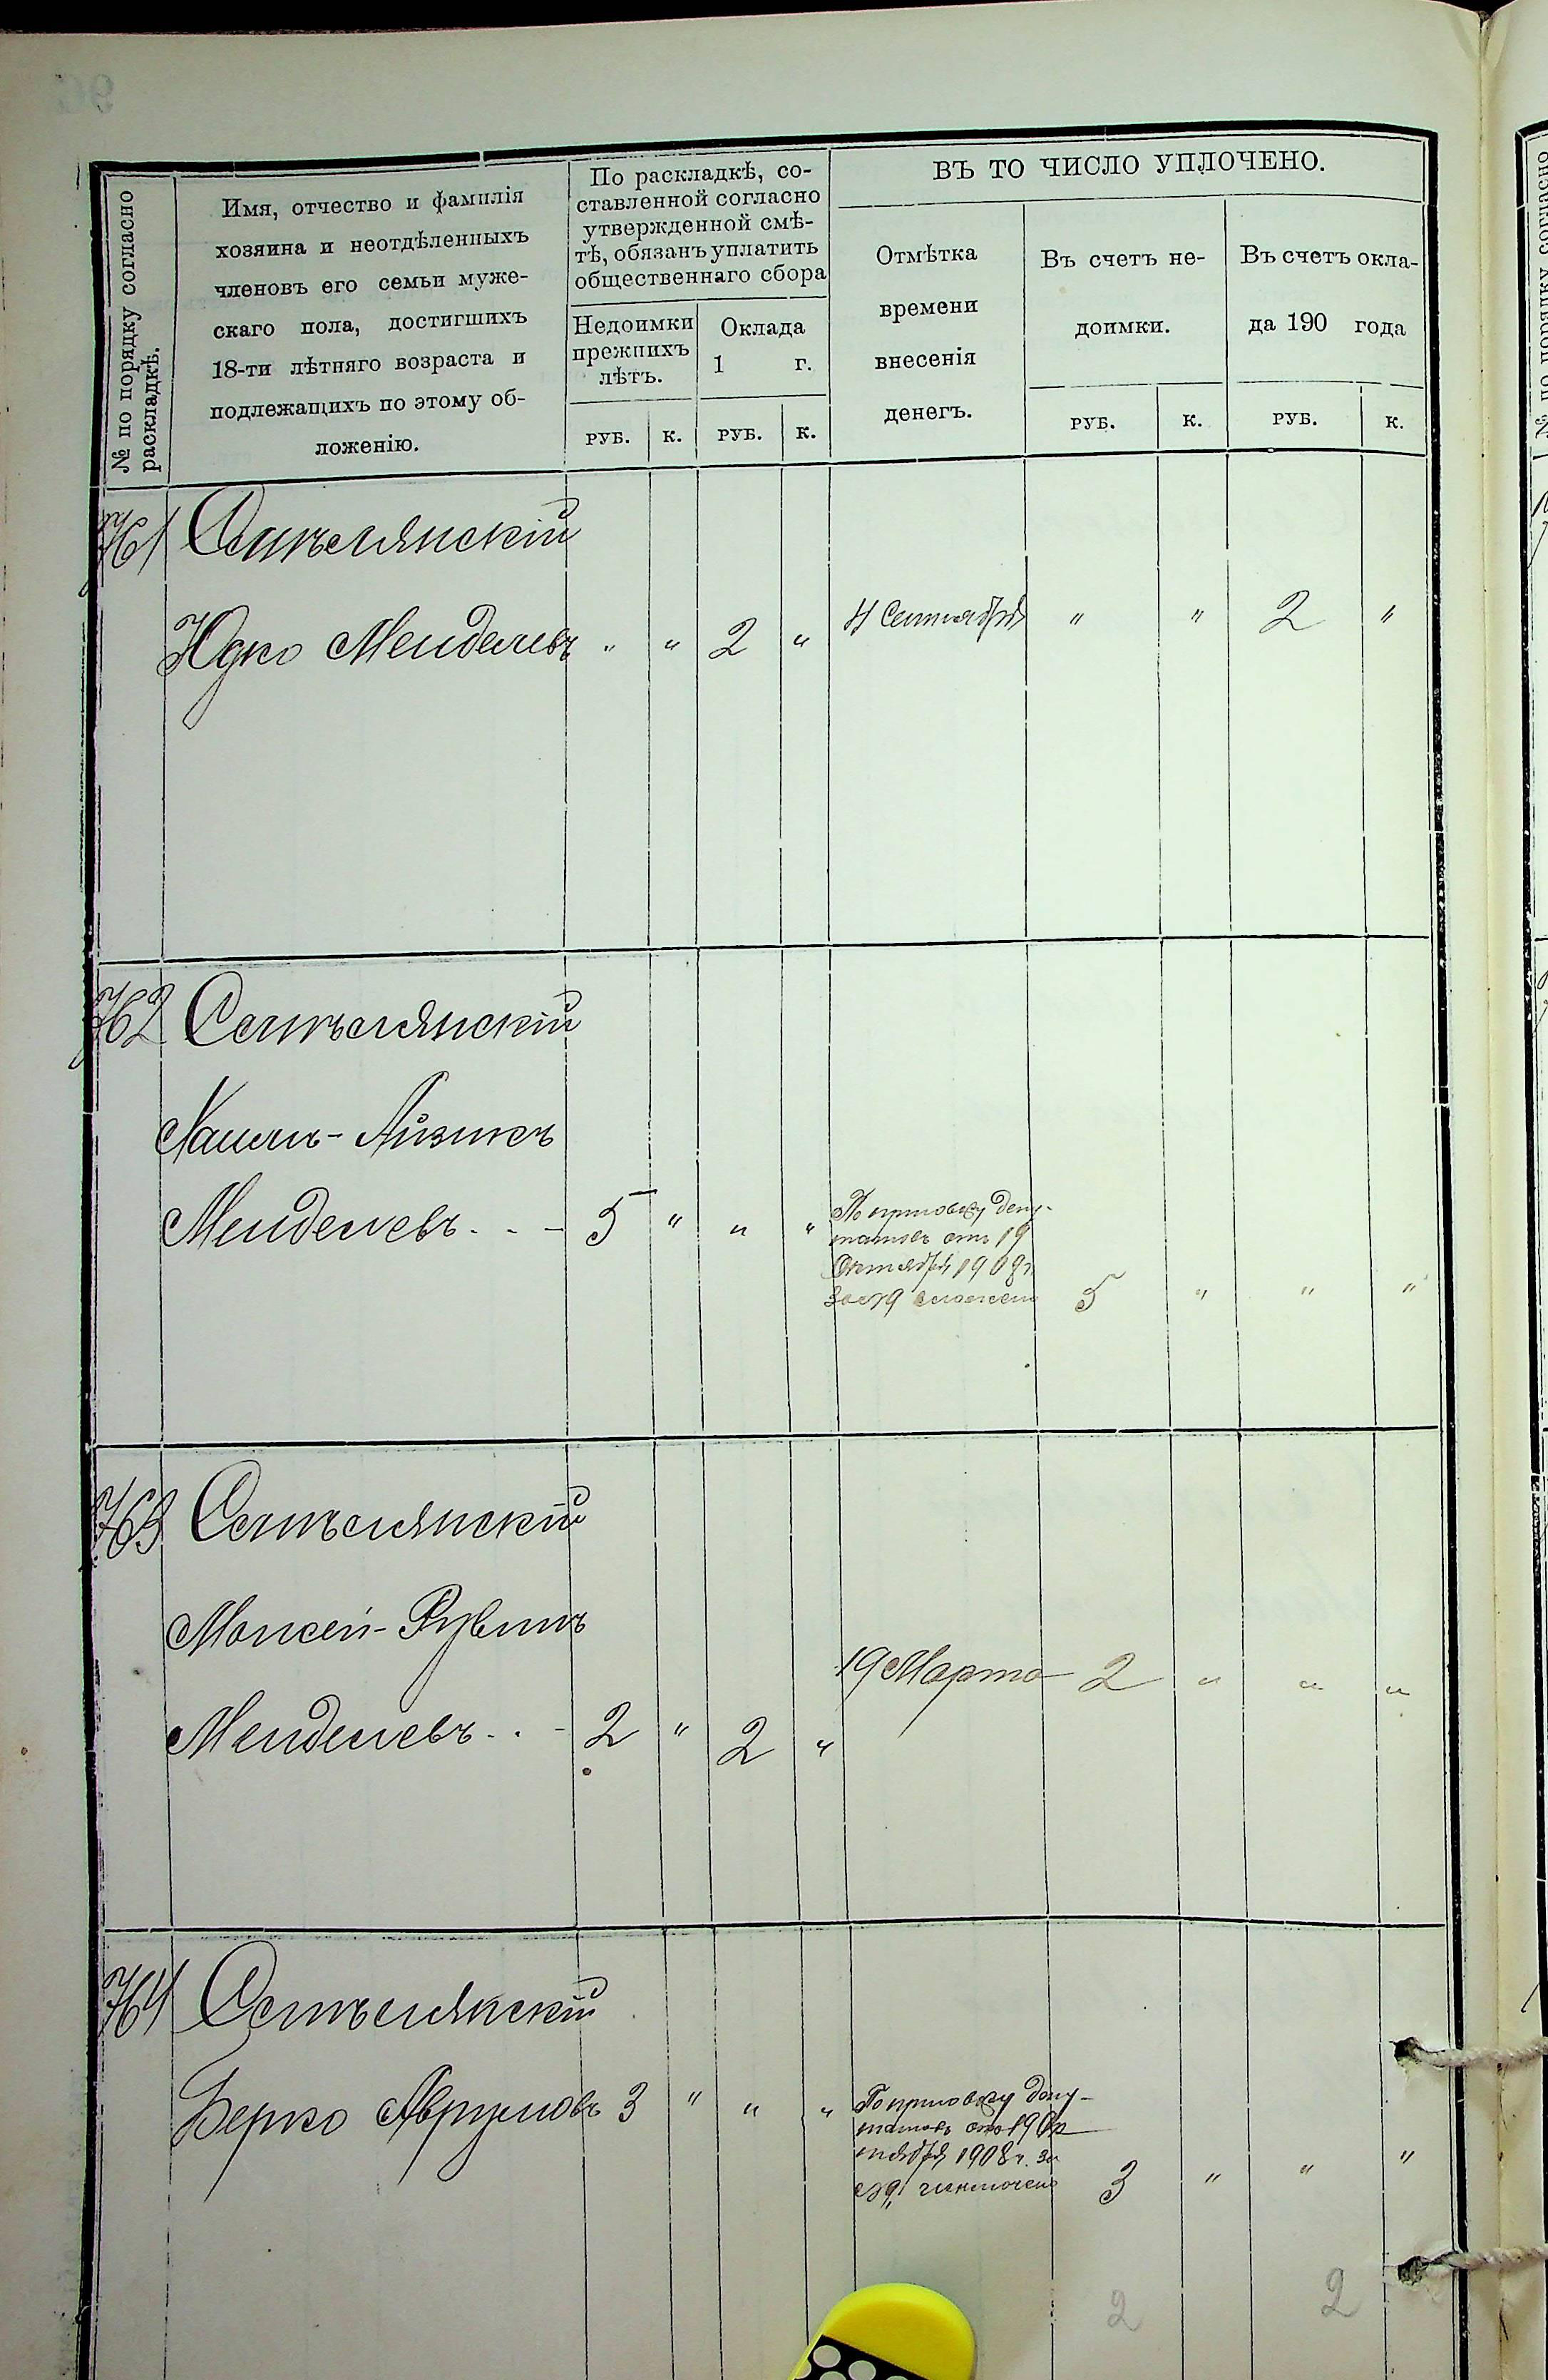 № по порядку согласно
раскладкѣ.
Имя, отчество и фамилія
хозяина и неотдѣленныхъ
членовъ его семьи муже-
скаго пола, достигшихъ
18-ти лѣтняго возраста и
подлежащихъ по этому об-
ложенію.
По раскладкѣ, со-
ставленной согласно
утвержденной смѣ-
тѣ, обязанъ уплатить
общественнаго сбора
Недоимки
прежнихъ
лѣтъ.
Оклада
1 г.
РУБ. К. РУБ. К.
ВЪ ТО ЧИСЛО УПЛОЧЕНО.
Отмѣтка
времени
внесенія
денегъ.
Въ счетъ не-
доимки.
РУБ. К.
Въ счетъ окла-
да 190 года
РУБ. К.
761
Юдко Менделевъ " " 2 " 4 Сентября " " 2 "
762
Айзикъ
Менделевъ - - 5 " " "
По приговору депу-
татовъ отъ 19
Октября 1908 г.
за № 9 сложено 5 " " "
763
Моисей-Рувинъ
19 Марта 2 " " "
Менделевъ - - 2 " 2 "
764
Берко Аврумовъ 3 " " "
По приговору депу-
татовъ отъ 19 Ок
тября 1908 г. за
№ 9 3 " " "
2 2